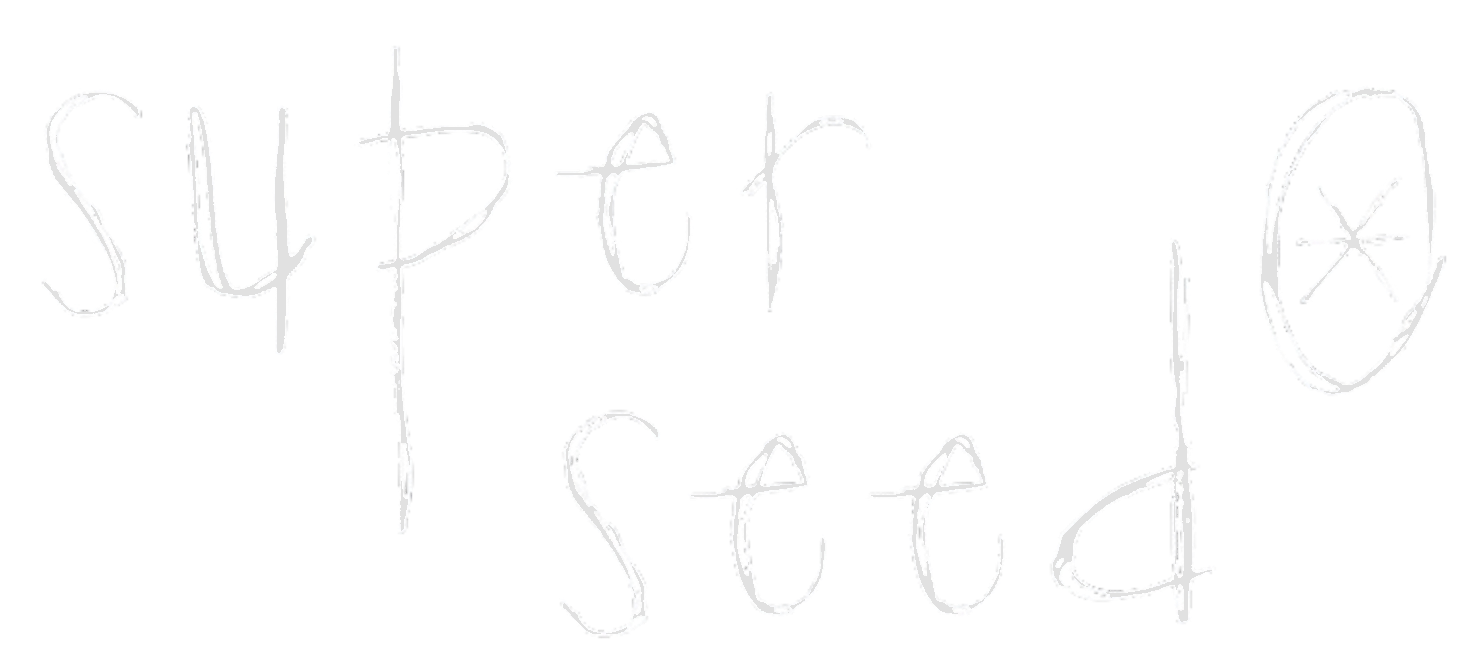 super
seed